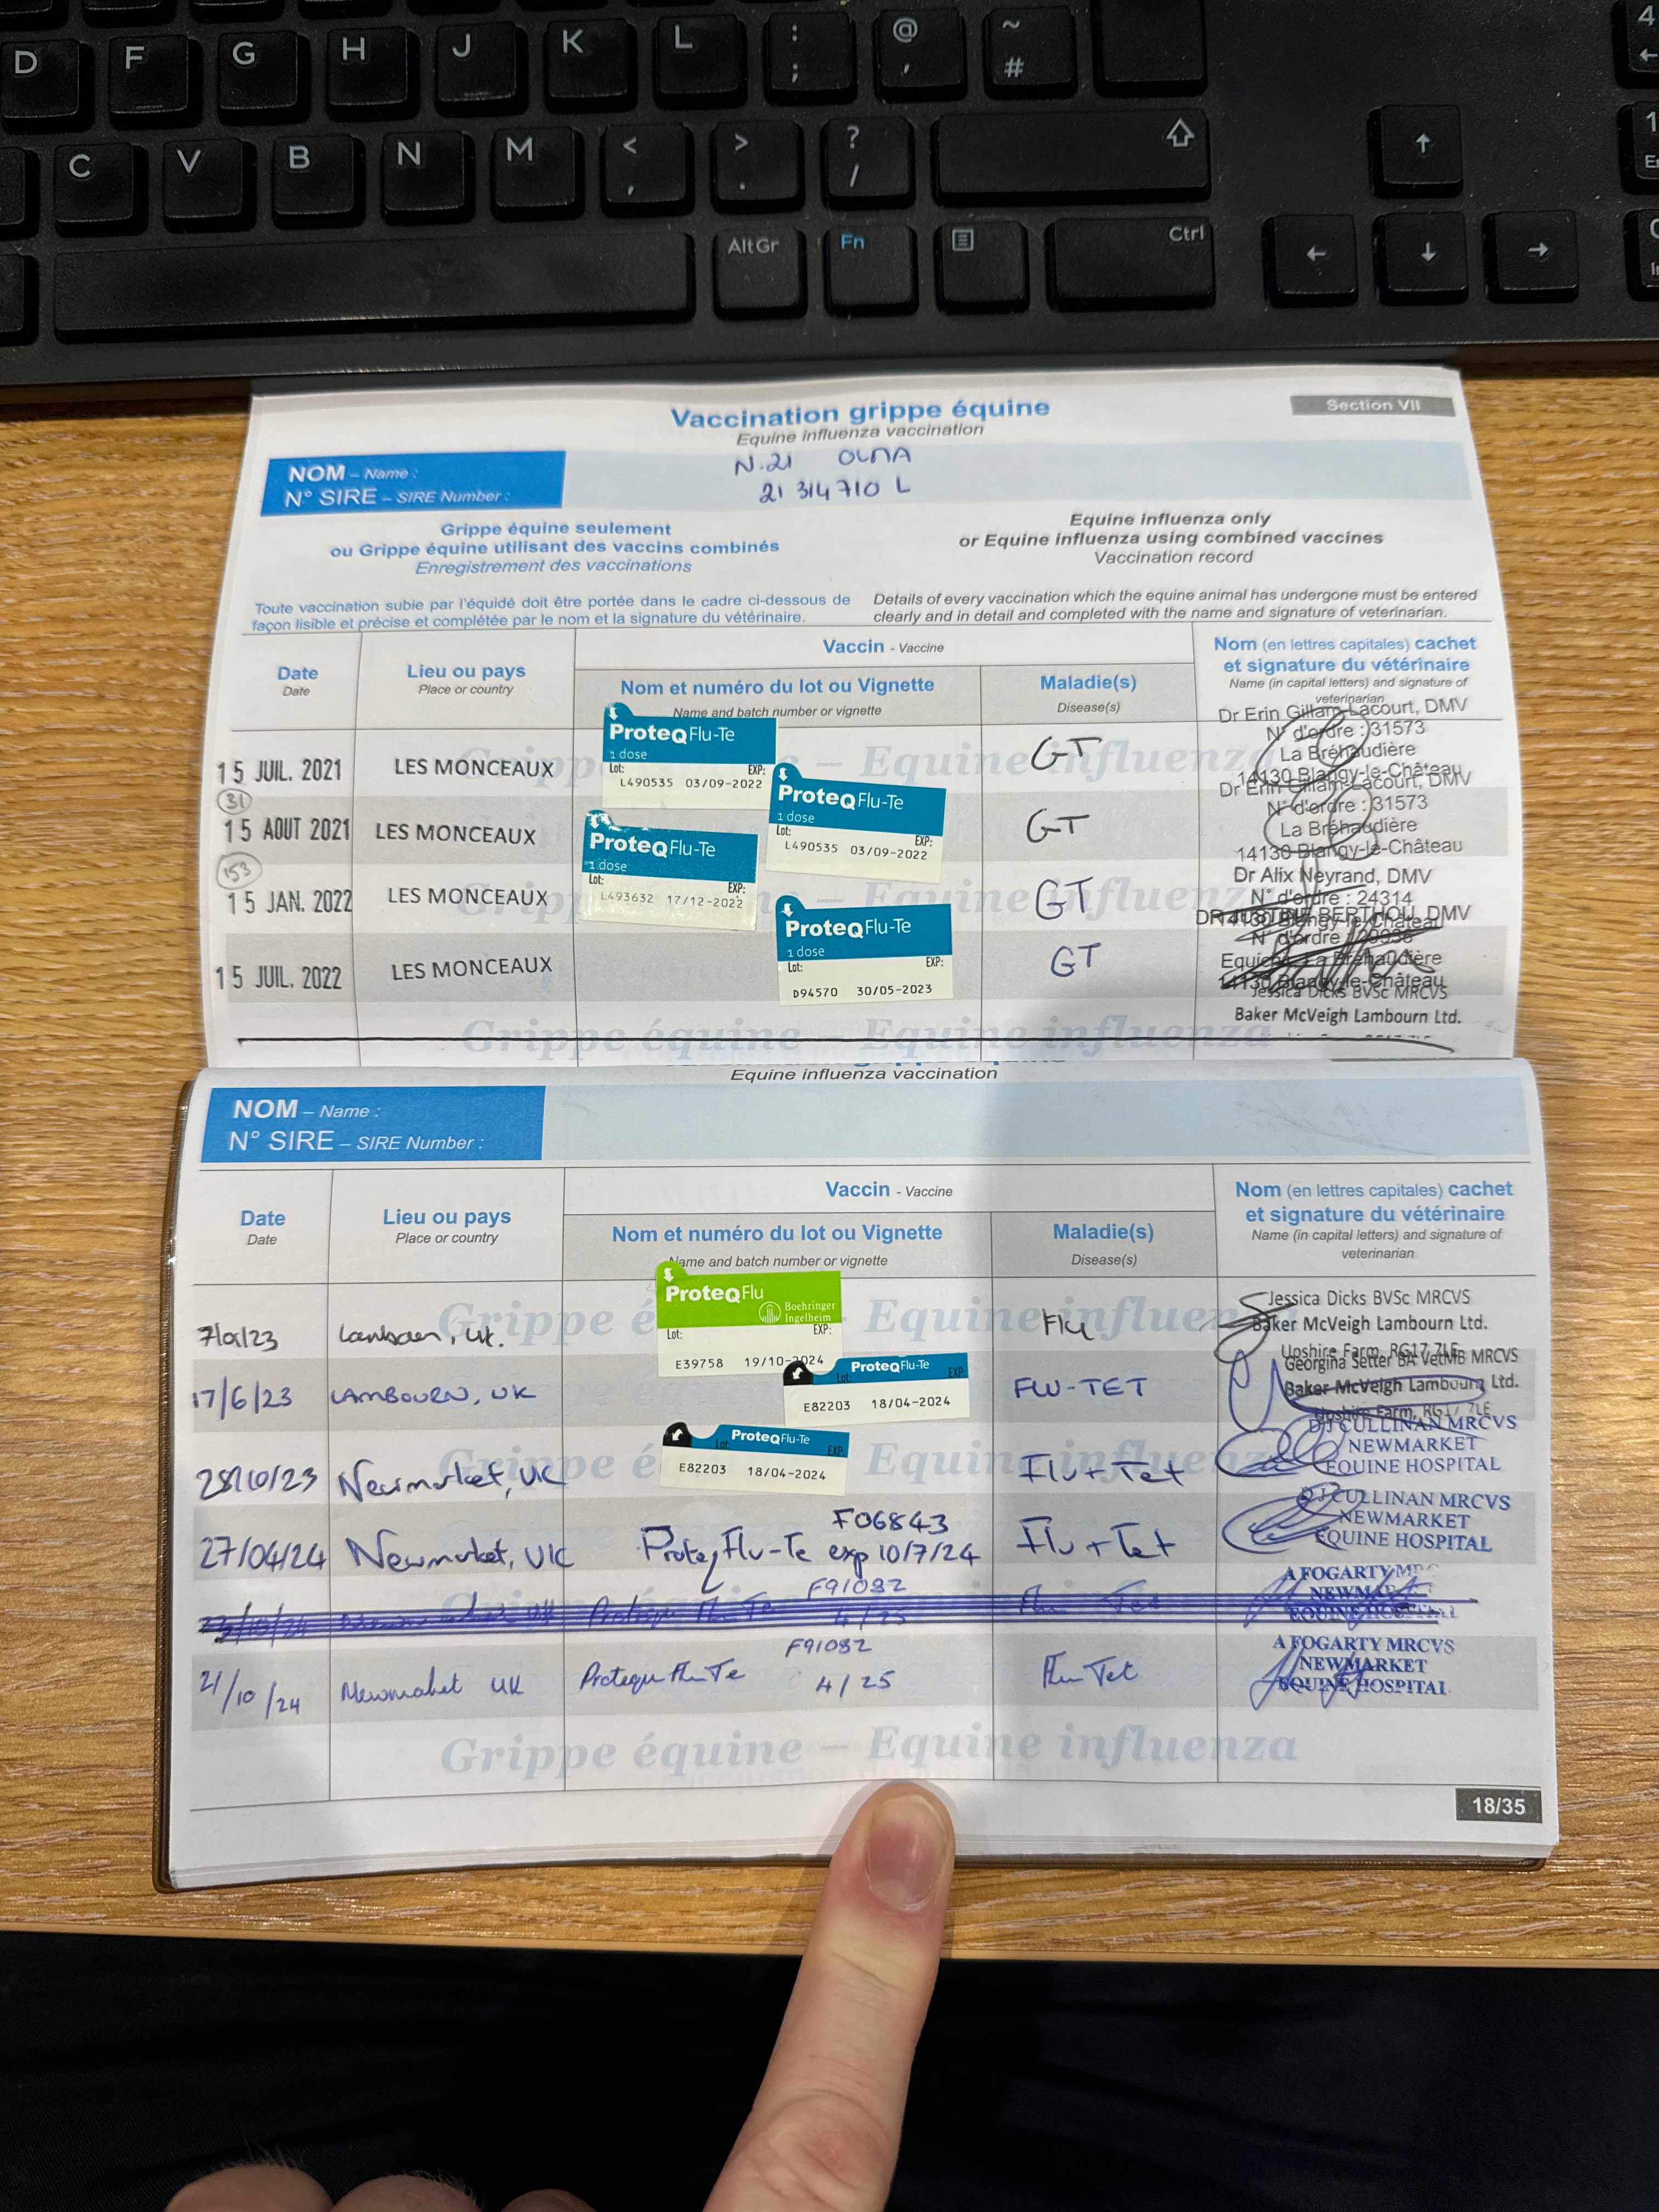 D F G H J K L : ; @ ' ~ # 4
C V B N M < , > . ? / 1
AltGr Fn Ctrl
Vaccination grippe équine
Section VII
Equine influenza vaccination
NOM – Name :
N.21 OLMA
N° SIRE – SIRE Number :
21 314 710 L
Grippe équine seulement
ou Grippe équine utilisant des vaccins combinés
Enregistrement des vaccinations
Equine influenza only
or Equine influenza using combined vaccines
Vaccination record
Toute vaccination subie par l'équidé doit être portée dans le cadre ci-dessous de
façon lisible et précise et complétée par le nom et la signature du vétérinaire.
Details of every vaccination which the equine animal has undergone must be entered
clearly and in detail and completed with the name and signature of veterinarian.
Date
Date
Lieu ou pays
Place or country
Vaccin - Vaccine
Nom et numéro du lot ou Vignette
Name and batch number or vignette
Maladie(s)
Disease(s)
Nom (en lettres capitales) cachet
et signature du vétérinaire
Name (in capital letters) and signature of
veterinarian
15 JUIL. 2021
LES MONCEAUX
ProteqFlu-Te
1 dose
Lot: EXP:
L490535 03/09-2022
GT
Dr Erin Gillam-Lacourt, DMV
N° d'ordre : 31573
La Bréhaudière
14130 Blangy-le-Château
31
15 AOUT 2021
LES MONCEAUX
ProteqFlu-Te
1 dose
Lot: EXP:
L490535 03/09-2022
GT
Dr Erin Gillam-Lacourt, DMV
N° d'ordre : 31573
La Bréhaudière
14130 Blangy-le-Château
153
15 JAN. 2022
LES MONCEAUX
ProteqFlu-Te
1 dose
Lot: EXP:
L493632 17/12-2022
GT
Dr Alix Neyrand, DMV
N° d'ordre : 24314
14130 Blangy-le-Château
15 JUIL. 2022
LES MONCEAUX
ProteqFlu-Te
1 dose
Lot: EXP:
D94570 30/05-2023
GT
BERTHOU, DMV
N° d'ordre
La Bréhaudière
14130 Blangy-le-Château
Jessica Dicks BVSc MRCVS
Baker McVeigh Lambourn Ltd.
Grippe équine – Equine influenza
Equine influenza vaccination
NOM – Name :
N° SIRE – SIRE Number :
Date
Date
Lieu ou pays
Place or country
Vaccin - Vaccine
Nom et numéro du lot ou Vignette
Name and batch number or vignette
Maladie(s)
Disease(s)
Nom (en lettres capitales) cachet
et signature du vétérinaire
Name (in capital letters) and signature of
veterinarian
Lambourn, UK.
ProteqFlu
Boehringer
Ingelheim
Lot: EXP:
E39758 19/10-2024
Flu
Jessica Dicks BVSc MRCVS
Baker McVeigh Lambourn Ltd.
Upshire Farm, RG17 7LE
17/6/23
LAMBOURN, UK
ProteqFlu-Te
Lot: EXP:
E82203 18/04-2024
FLU-TET
Georgina Setter BA VetMB MRCVS
Baker McVeigh Lambourn Ltd.
Upshire Farm, RG17 7LE
28/10/23
Newmarket, UK
ProteqFlu-Te
Lot: EXP:
E82203 18/04-2024
Flu + Tet
DJ CULLINAN MRCVS
NEWMARKET
EQUINE HOSPITAL
27/04/24
Newmarket, UK
F06843
ProteqFlu-Te exp 10/7/24
Flu + Tet
DJ CULLINAN MRCVS
NEWMARKET
EQUINE HOSPITAL
F91082
4/25
A FOGARTY
NEWMARKET
EQUINE HOSPITAL
21/10/24
Newmarket UK
F91082
Protequ Flu Te 4/25
Flu Tet
A FOGARTY MRCVS
NEWMARKET
EQUINE HOSPITAL
Grippe équine – Equine influenza
18/35